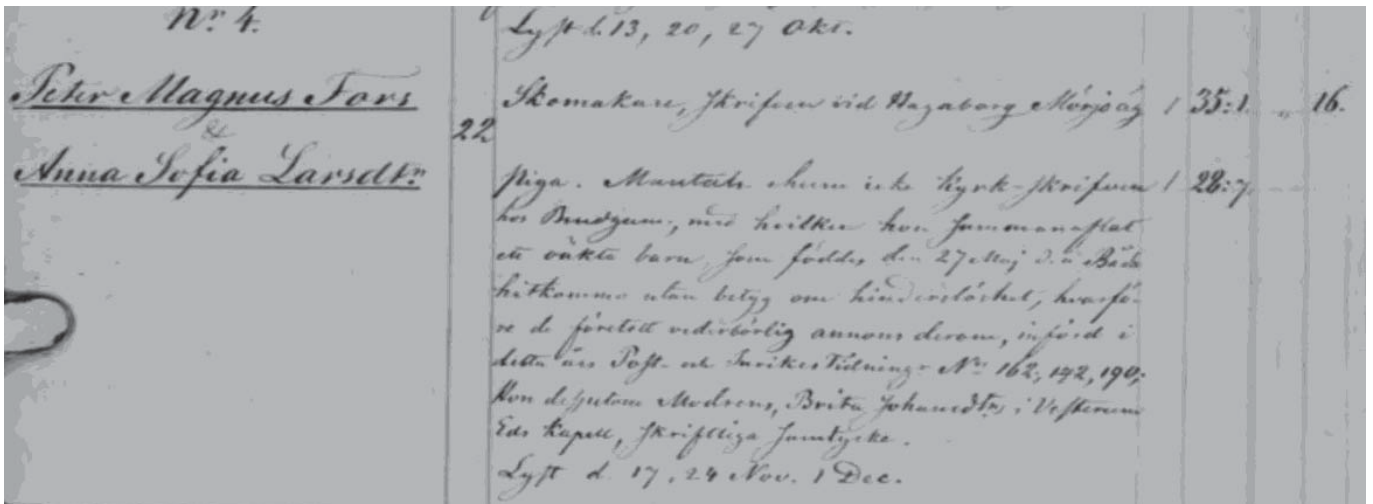 Nr. 4.
Lyst d. 13, 20, 27 Okt.
Peter Magnus Fors
&
Anna Sofia Larsdtr
22
Skomakare, skrifven vid Hagaborg Mörjöäg 1 35:1. „ 16.
piga. Mantals- ehuru icke Kyrk-skrifven 1 28:7.
hos Brudgum., med hvilken hon sammanaflat
ett oäkta barn, som föddes den 27 Maj d. å. Båda
hitkommo utan betyg om hinderslöshet, hvarfö-
re de företett vederbörlig annons derom, införd i
detta års Post- och Inrikes Tidningar Nr 162, 142, 190;
Hon dessutom Modrens, Brita Johansdtrs i Vesterum
Eds Kapell, skriftliga samtycke.
Lyst d. 17, 24 Nov. 1 Dec.